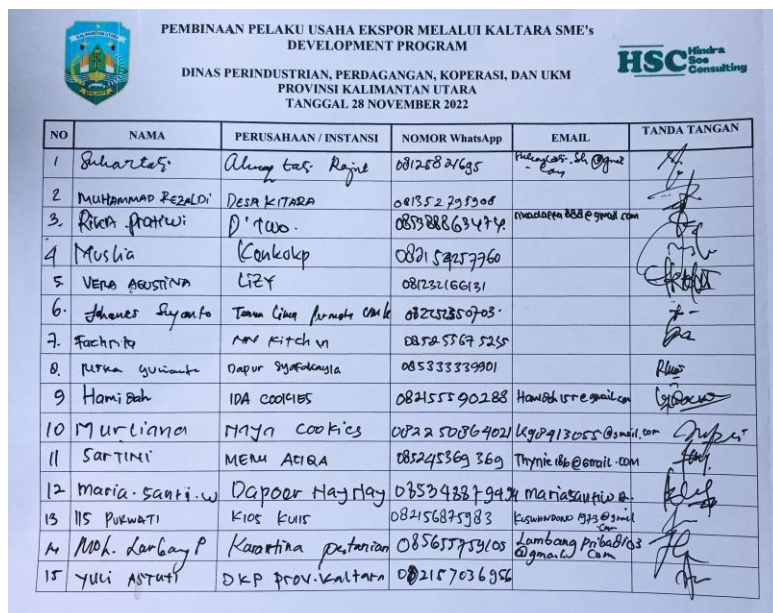 PEMBINAAN PELAKU USAHA EKSPOR MELALUI KALTARA SME's
DEVELOPMENT PROGRAM
DINAS PERINDUSTRIAN, PERDAGANGAN, KOPERASI, DAN UKM
PROVINSI KALIMANTAN UTARA
TANGGAL 28 NOVEMBER 2022
KALIMANTAN UTARA
HSC Hindra Soe Consulting
NO NAMA PERUSAHAAN / INSTANSI NOMOR WhatsApp EMAIL TANDA TANGAN
1 Suhartati 08125821695
2 MUHAMMAD REZALDI DESA KITARA 081352795908
3. Riska Pratiwi D'Two. 085388863474.
4 Muslia Konkokp 082154257760
5. VERA AGUSTINA LiZY 081232166131
6. Johanes Suyanto 082252350703.
7. Fachrita NN Kitchn 085255675235
8. Dapur Syafakayla 085333339901
9 Hamidah IDA COOKIES 082155590288
10 Murliana Naya Cookies 082250864021 kg8913055@gmail.com
11 SARTINI MENU AQIQA 085245369369 Thynie186@gmail.com
12 maria. santi. w Dapoer Maymay
13 IIS PURWATI KIOS KUIS 082156875983 KUSWANDONO1973@gmail.com
14 Moh. Lambang P Karantina pertanian 085655759105
15 YULI ASTUTI DKP prov. Kaltara 082157036956